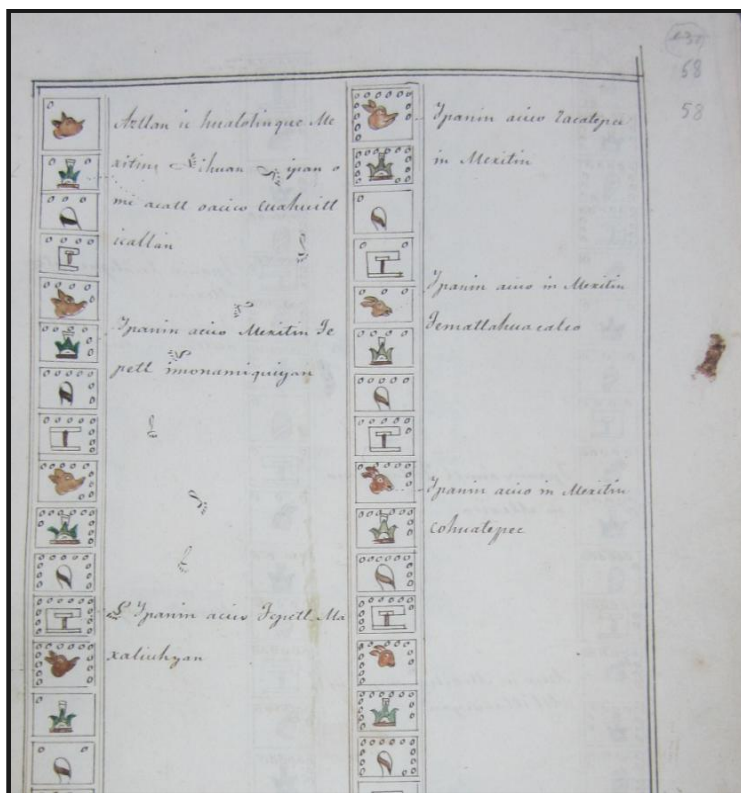 Aztlan ic hualolinque Me
xitin, Nihuan ipan o
mi acatl oacico Cuahuitl
icallan
Ipanin acico Mexitin Te
petl imonamiquiyan
Ipanin acico Tepetl Ma
xaliuhyan
Ipanin acico Zacatepec
in Mexitin
Ipanin acico in Mexitin
Tematlahuacalco
Ipanin acico in Mexitin
Cohuatepec
58
58